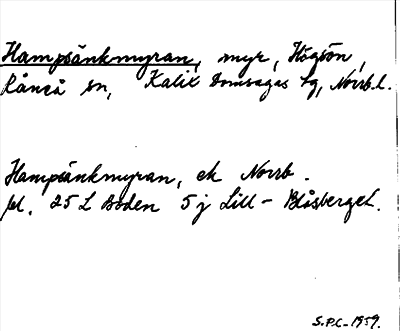 Hampsänkmyran, myr, Högsön,
Råneå sn, Kalix domsagas tg, Norrb.l.
Hampsänkmyran, ek Norrb.
bl. 25 L Boden 5 j Lill-Blåsberget.
S.P.C. 1959.